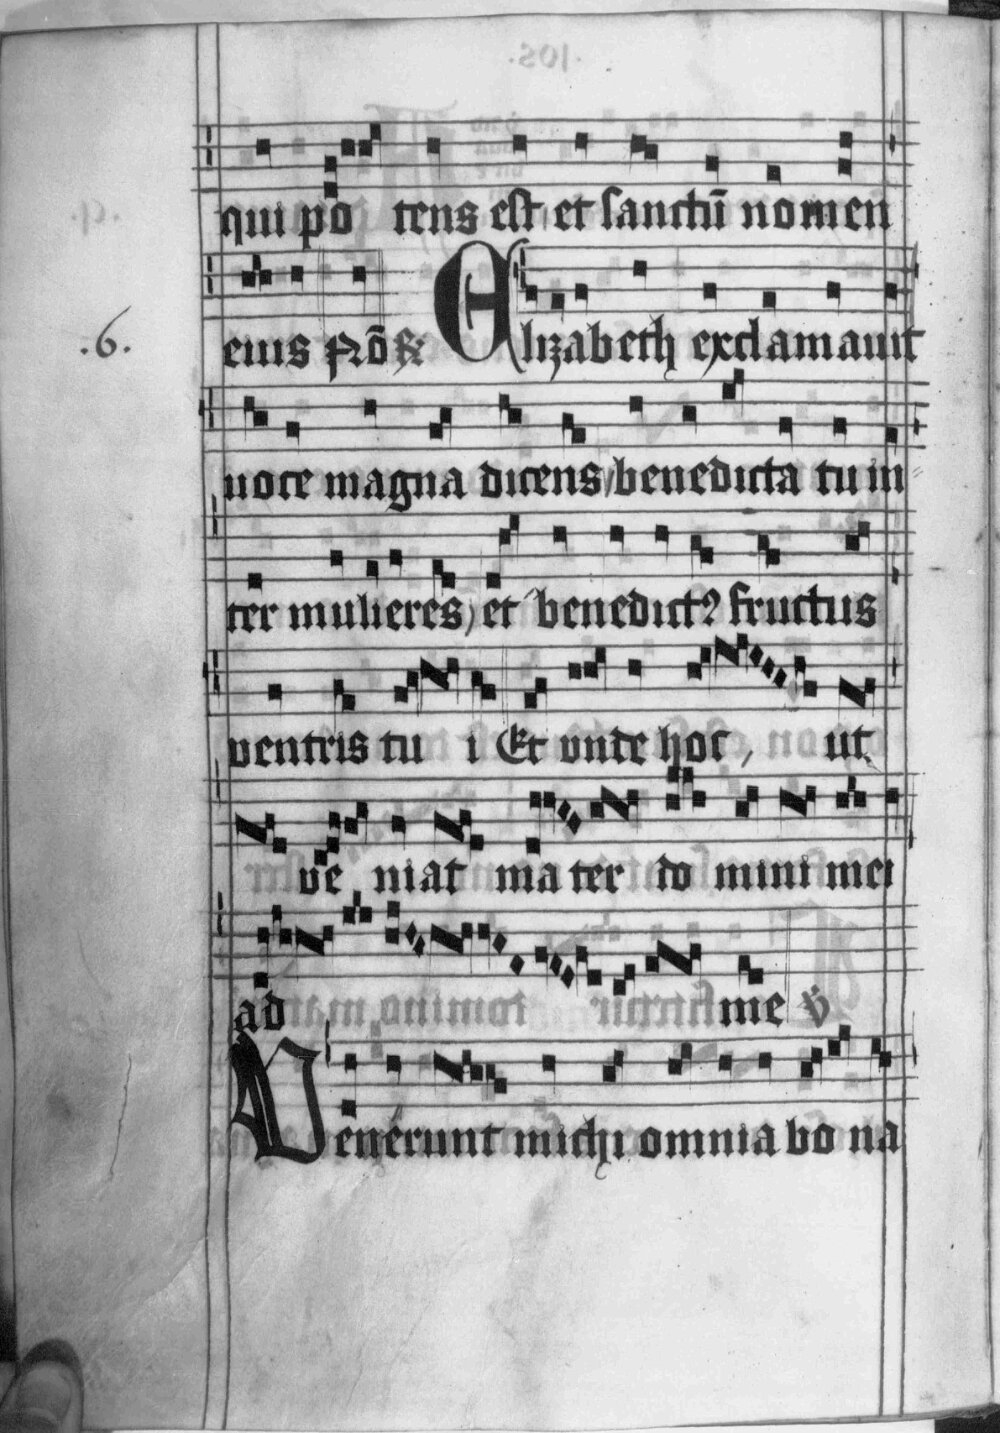 qui po tens est et sanctū nomen
.6.
eius Elizabeth exclamauit
uoce magna dicens benedicta tu in
ter mulieres et benedict9 fructus
ventris tu i Et vnde hoc, ut
ve niat ma ter do mini mei
ad me v̇
Venerunt michi omnia bo na